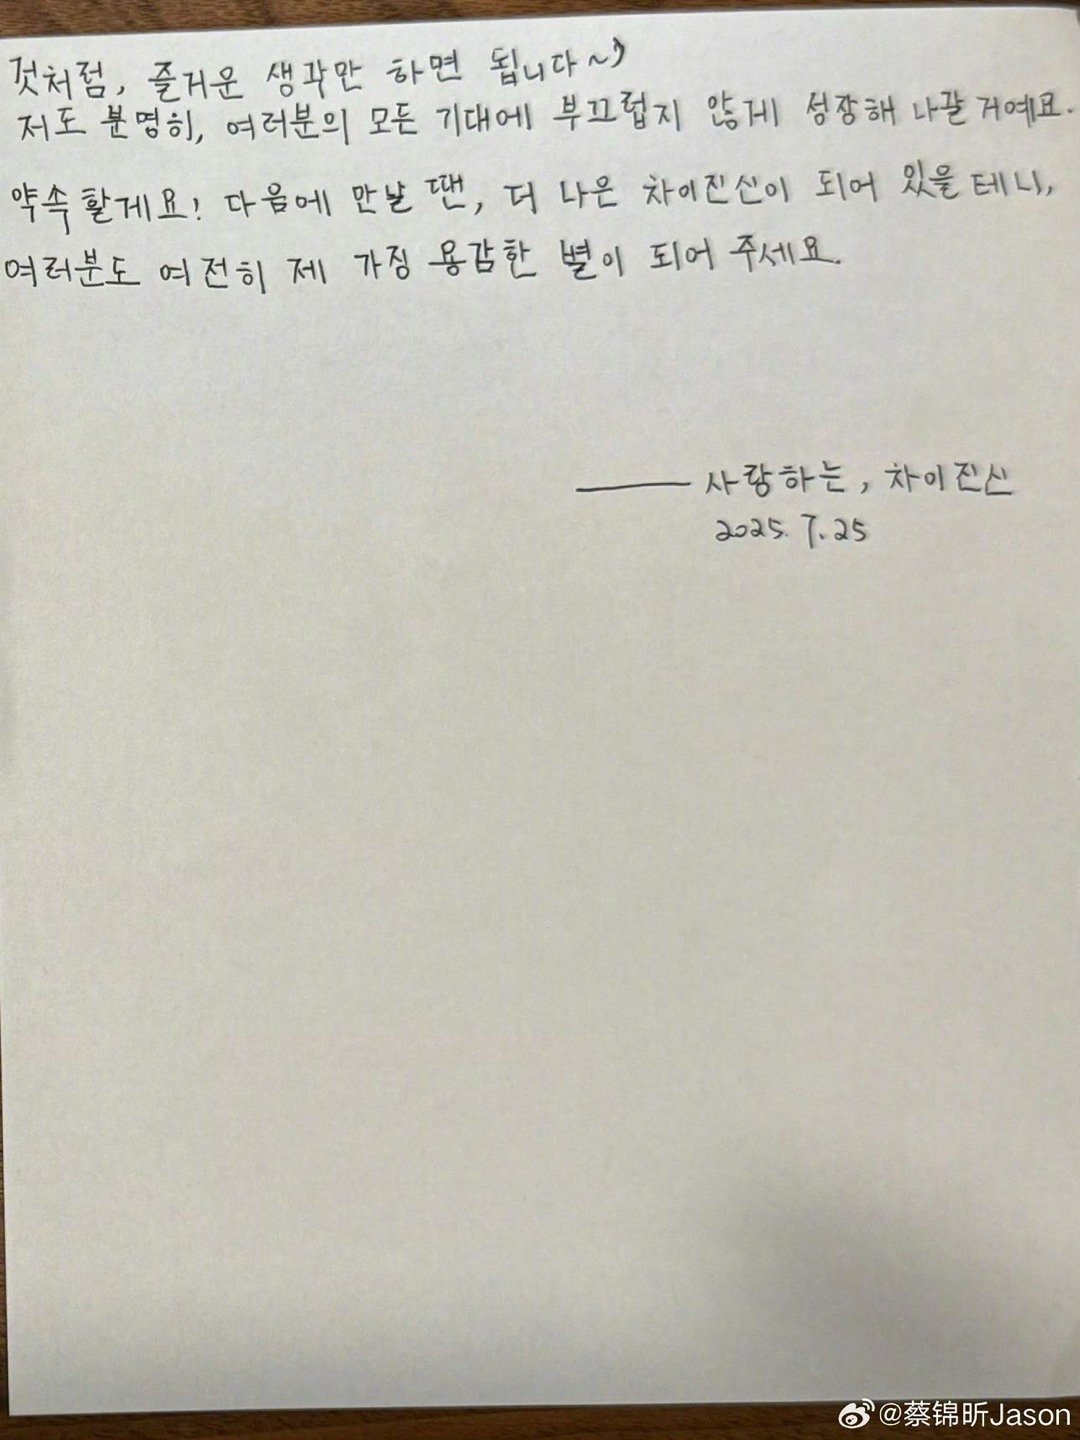 것처럼, 즐거운 생각만 하면 됩니다~)
저도 분명히, 여러분의 모든 기대에 부끄럽지 않게 성장해 나갈 거예요.
약속할게요! 다음에 만날 땐, 더 나은 차이진신이 되어 있을 테니,
여러분도 여전히 제 가장 용감한 별이 되어 주세요.
—— 사랑하는, 차이진신
2025. 7. 25
@蔡锦昕Jason